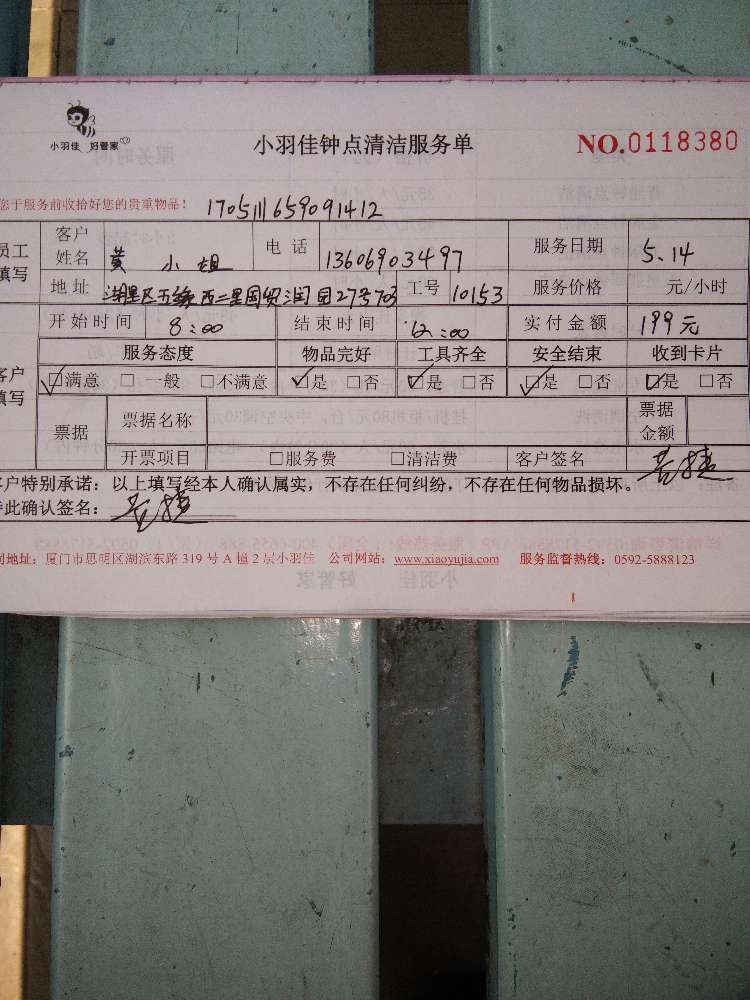 小羽佳 好管家
小羽佳钟点清洁服务单
NO.0118380
您于服务前收拾好您的贵重物品! 1705111659091412
员工填写
客户姓名 黄小姐 电话 13606903497 服务日期 5.14
地址 湖里区五缘西二里国贸润园27号703 工号 10153 服务价格 元/小时
开始时间 8:00 结束时间 12:00 实付金额 199元
客户填写
服务态度 物品完好 工具齐全 安全结束 收到卡片
☑满意 □一般 □不满意 ☑是 □否 ☑是 □否 ☑是 □否 ☑是 □否
票据 票据名称 票据金额
开票项目 □服务费 □清洁费 客户签名
客户特别承诺:以上填写经本人确认属实,不存在任何纠纷,不存在任何物品损坏。
特此确认签名:
司地址:厦门市思明区湖滨东路 319 号 A 幢 2 层小羽佳 公司网站:www.xiaoyujia.com 服务监督热线:0592-5888123